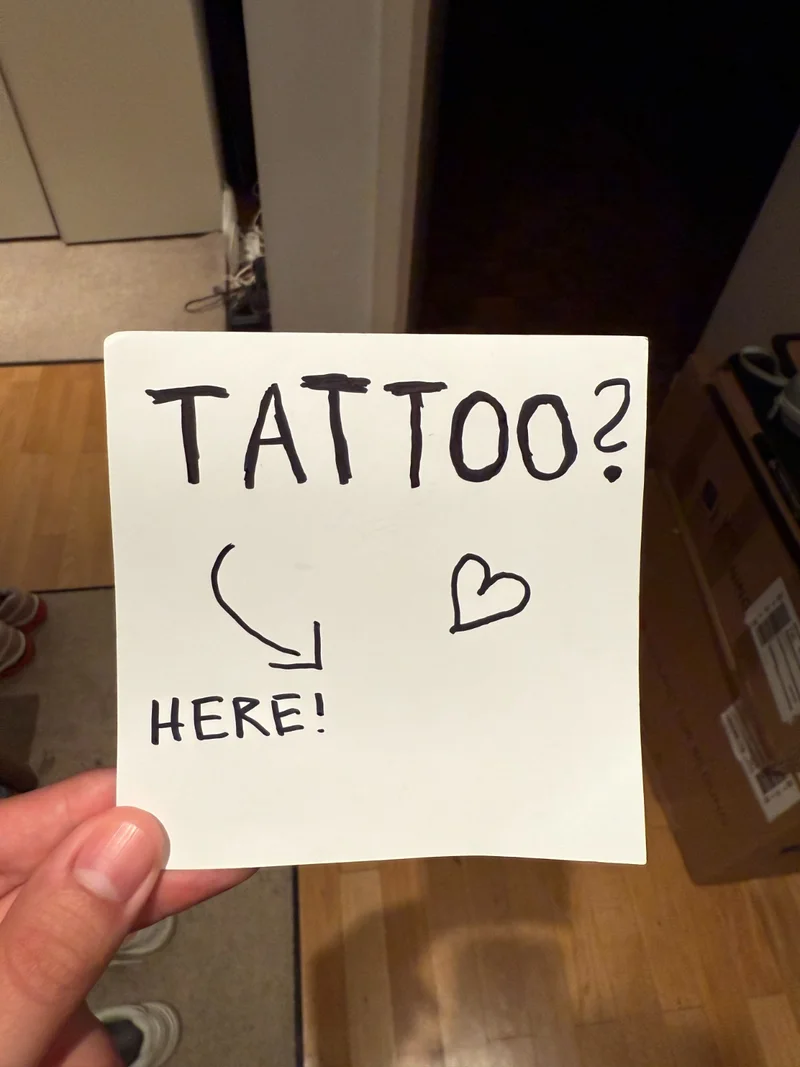 TATTOO?
HERE!